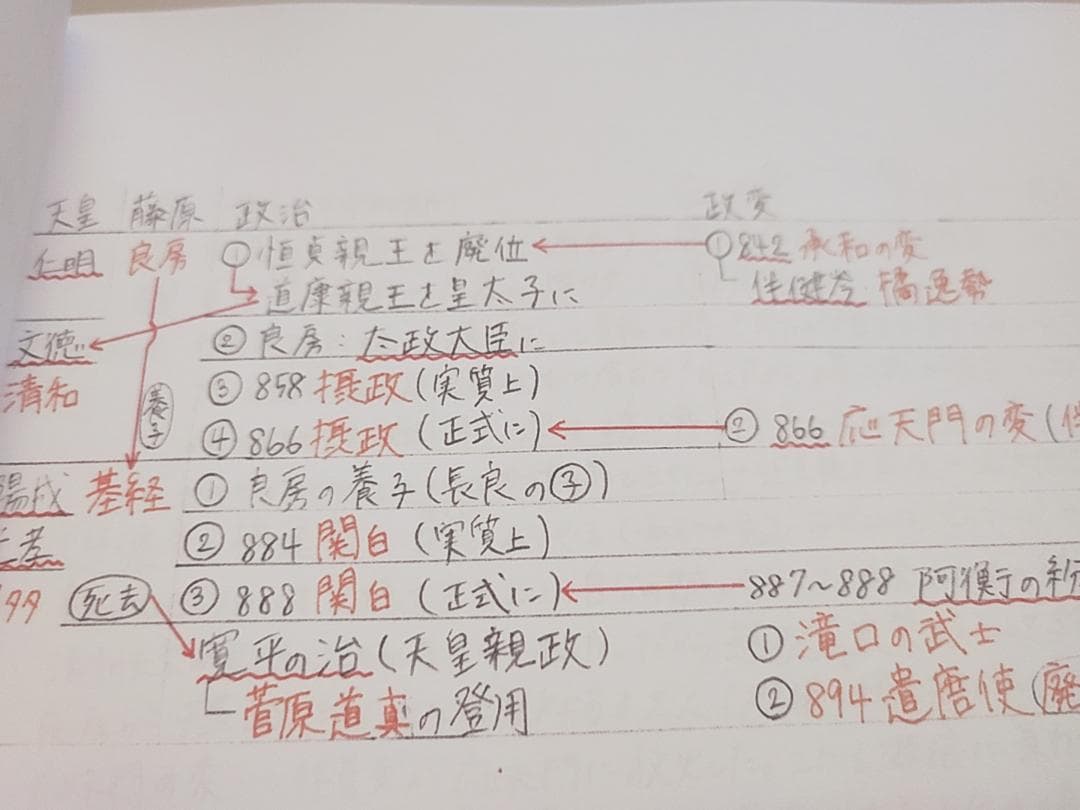 天皇 藤原 政治 政変
仁明 良房 ①恒貞親王を廃位 ①842 承和の変
道康親王を皇太子に 伴健岑 橘逸勢
文徳 ②良房:太政大臣に
清和 養子 ③858 摂政(実質上)
④866 摂政(正式に) ②866 応天門の変(伴
陽成 基経 ①良房の養子(長良の子)
光孝 ②884 関白(実質上)
死去 ③888 関白(正式に) 887~888 阿衡の紛
寛平の治(天皇親政) ①滝口の武士
菅原道真の登用 ②894 遣唐使(廃